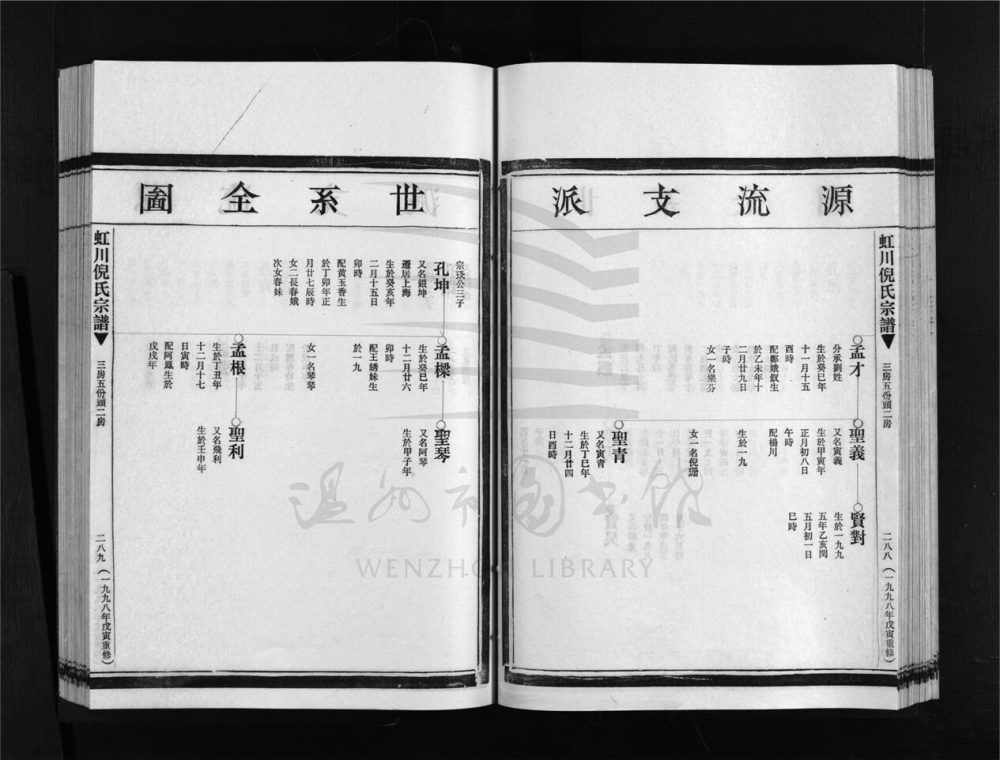 源流支派
虹川倪氏宗譜
三房五份頭二房
二八八
(一九九八年戊寅重修)
孟才
分承劉姓
生於癸巳年
十一月十五
酉時
配鄭娥釵生
於乙未年十
二月廿九日
子時
女一名樂芬
聖義
又名寅義
生於甲寅年
正月初八日
午時
配楊川
生於一九
女一名倪珊
賢對
生於一九九
五年乙亥閏
五月初一日
巳時
聖青
又名寅青
生於丁巳年
十二月廿四
日酉時
世系全圖
宗玦公三子
孔坤
又名銀坤
遷居上海
生於癸亥年
二月十五日
卯時
配黃玉香生
於丁卯年正
月廿七辰時
女二長春娥
次女春妹
孟樑
生於癸巳年
十二月廿六
卯時
配王綉妹生
於一九
女一名琴琴
聖琴
又名阿琴
生於甲子年
孟根
生於丁丑年
十二月十七
日寅時
配阿鳳生於
戊戌年
聖利
又名飛利
生於壬申年
虹川倪氏宗譜
三房五份頭二房
二八九
(一九九八年戊寅重修)
溫州市圖書館
WENZHOU LIBRARY